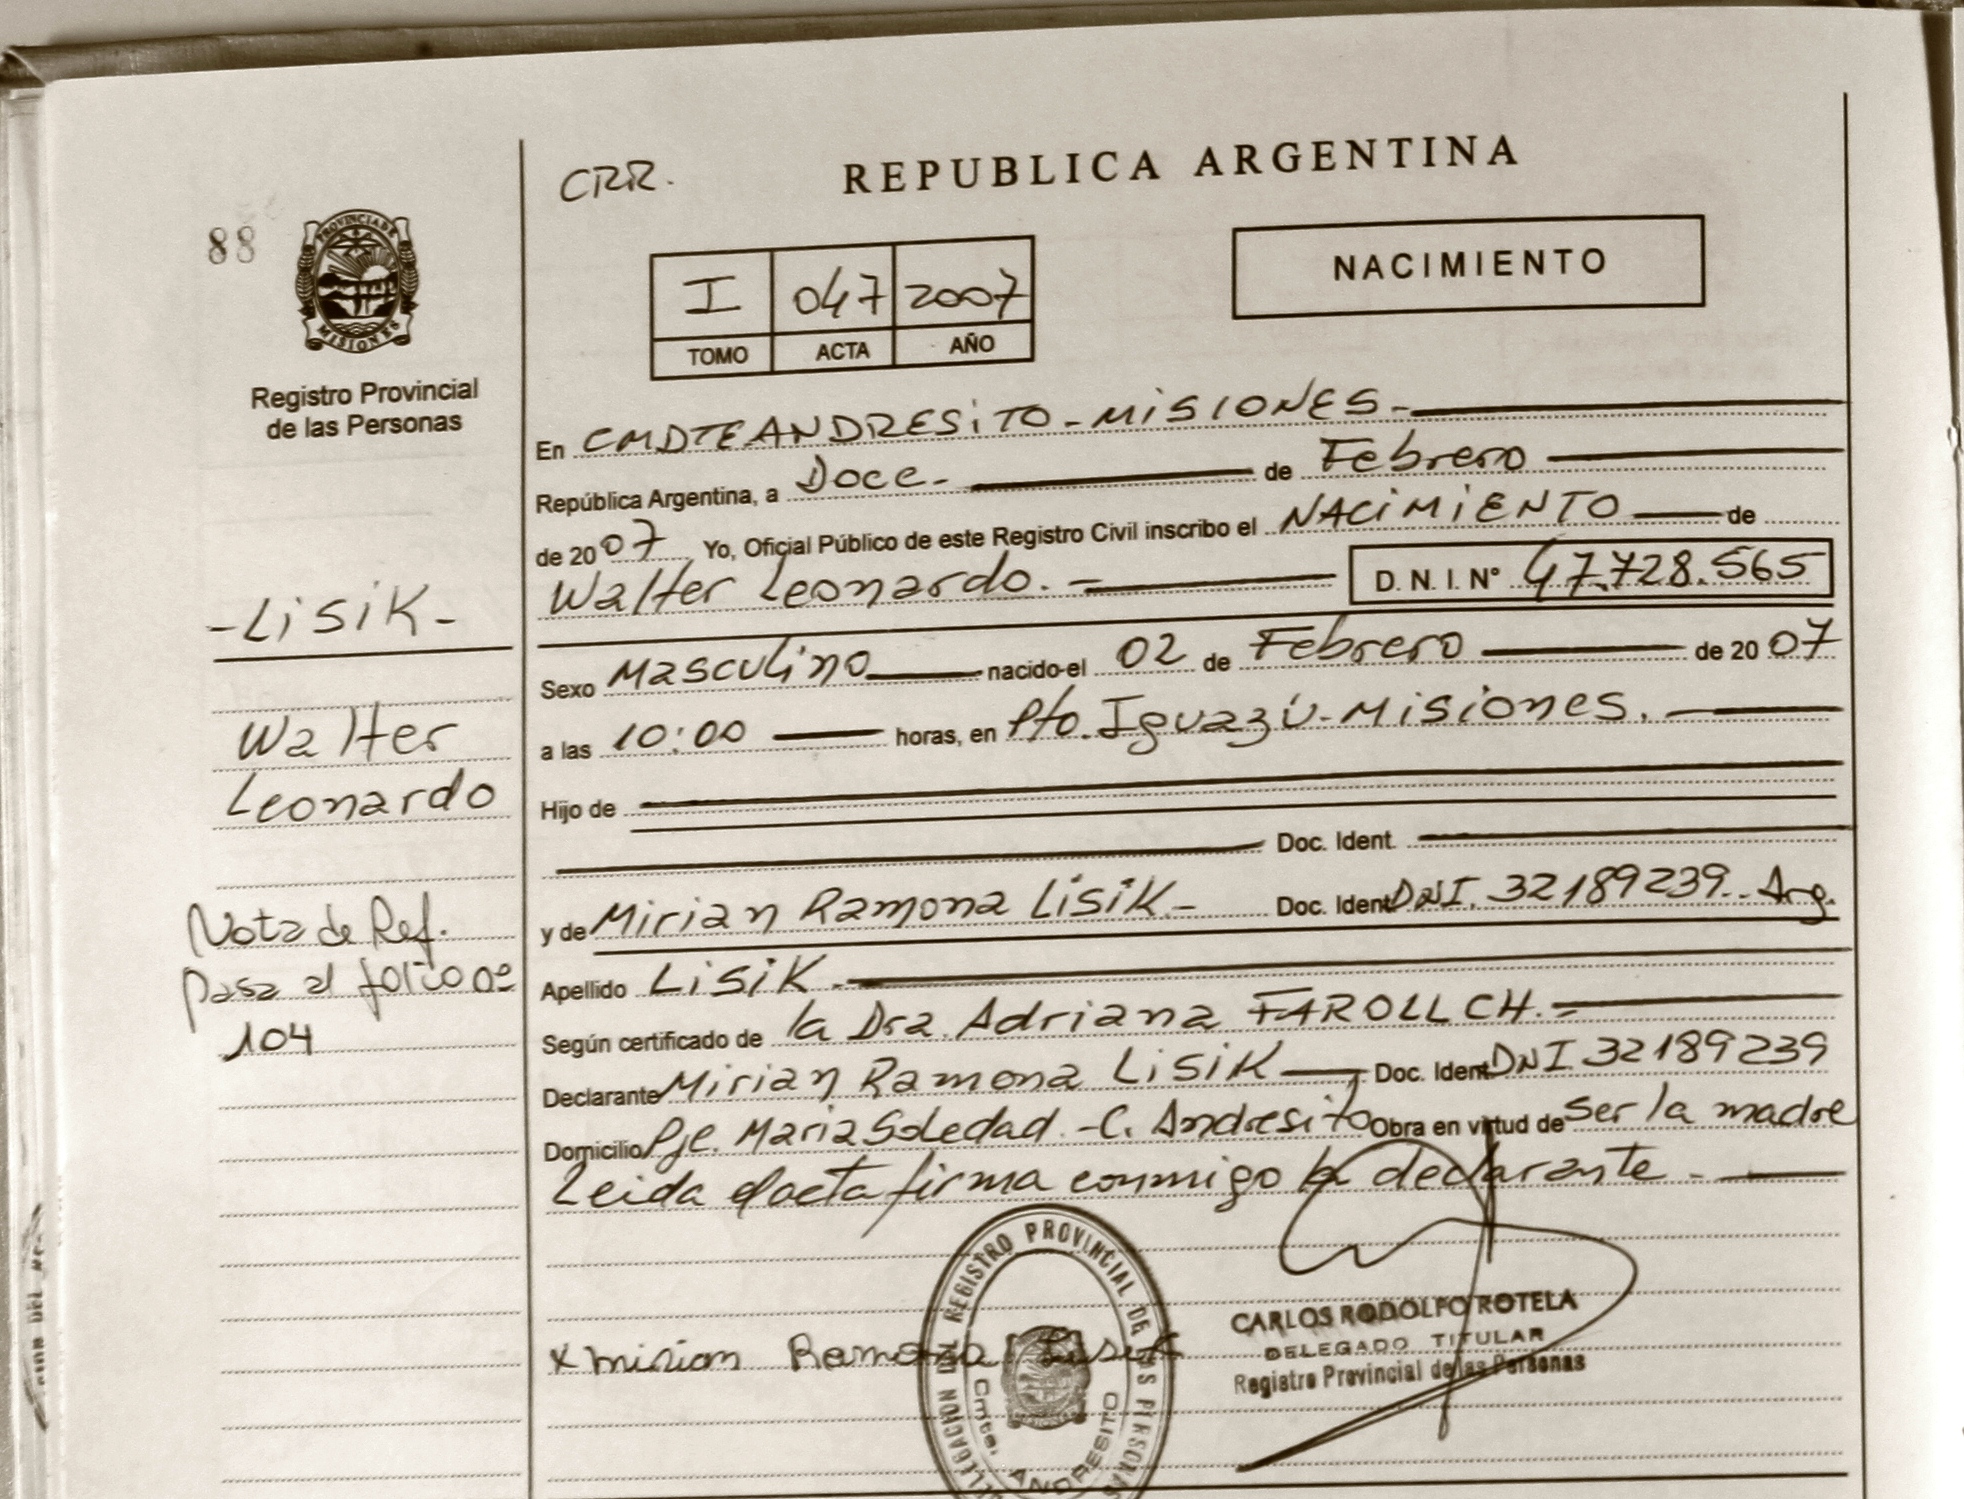 CRR.
REPUBLICA ARGENTINA
88
PROVINCIA DE MISIONES
NACIMIENTO
I 047 2007
TOMO ACTA AÑO
Registro Provincial
de las Personas
En CMDTE ANDRESiTO - MiSIONES.-
República Argentina, a Doce.- de Febrero
de 2007 Yo, Oficial Público de este Registro Civil inscribo el NACiMiENTO de
Walter Leonardo. - D. N. I. Nº 47.728.565
-LiSiK-
Sexo Masculino nacido el 02 de Febrero de 2007
Walter
a las 10:00 horas, en Pto. Iguazú - Misiones.
Leonardo
Hijo de
Doc. Ident.
y de Mirian Ramona LiSiK.- Doc. Ident DNI. 32189239.. Arg.
Nota de Ref.
Pasa al folio nº
104
Apellido LiSiK.-
Según certificado de la Dra. Adriana FAROLLCH.-
Declarante Mirian Ramona LiSiK Doc. Ident DNI 32189239
Domicilio Pje. Maria Soledad - C. Andresito Obra en virtud de ser la madre
Leida el acta firma conmigo la declarante.-
DELEGACION DEL REGISTRO PROVINCIAL DE LAS PERSONAS
Cmte. ANDRESITO
x mirian Ramona Lisik
CARLOS RODOLFO ROTELA
DELEGADO TITULAR
Registro Provincial de las Personas